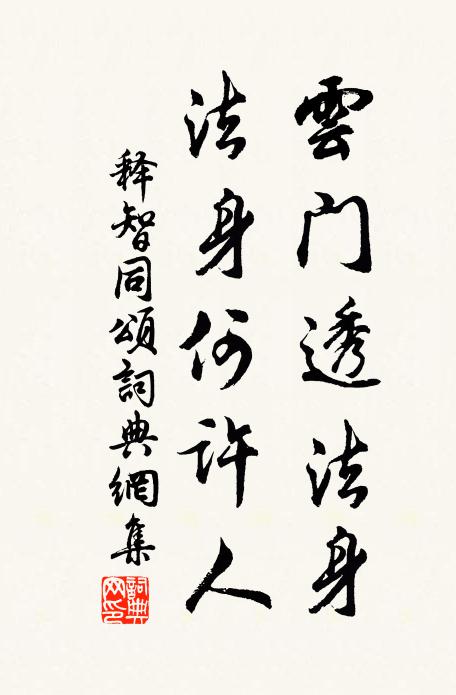 雲门透法身
法身何许人
释智同頌詞典網集
詞典网印